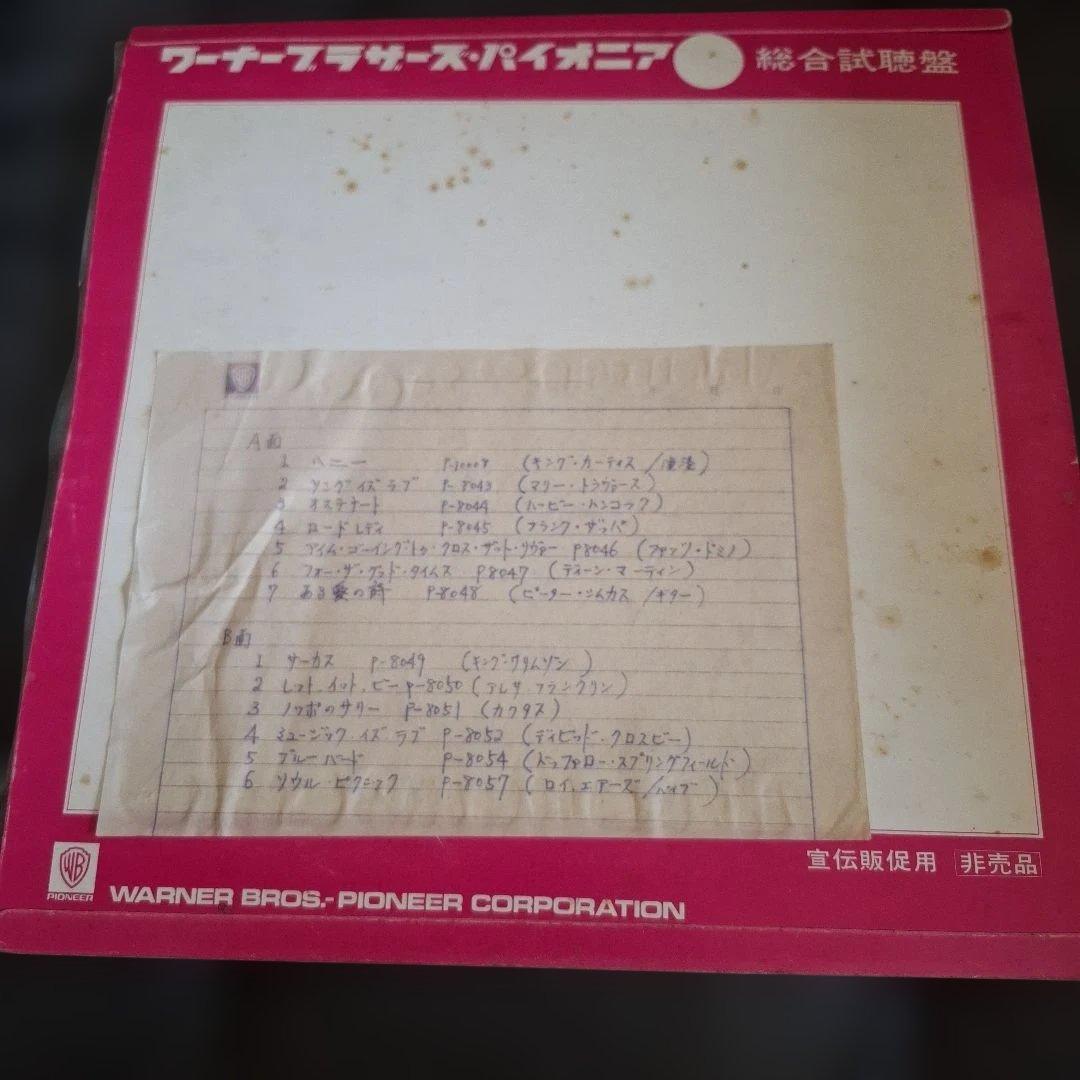 ワーナーブラザーズ・パイオニア 総合試聴盤
A面
1 ハニー P-10008 (キング・カーティス/
2 ソング イズ ラブ P-8043 (マリー・トラヴァース)
3 オステナート P-8044 (ハービー・ハンコック)
4 ロード レディ P-8045 (フランク・ザッパ)
5 アイム・ゴーイング・トゥ・クロス・ザット・リヴァー P8046 (ファッツ・ドミノ)
6 フォー・ザ・グッド・タイムス P8047 (ディーン・マーティン)
7 ある愛の詩 P-8048 (ピーター・ /ギター)
B面
1 サーカス P-8049 (キング・クリムゾン)
2 レット.イット.ビー P-8050 (アレサ フランクリン)
3 ノッポのサリー P-8051 (カクタス)
4 ミュージック イズ ラブ P-8052 (ディビッド・クロスビー)
5 ブルーバード P-8054 (バッファロー・スプリングフィールド)
6 ソウル・ピクニック P-8057 (ロイ.エアーズ/バイブ)
宣伝販促用 非売品
WB
PIONEER
WARNER BROS.-PIONEER CORPORATION